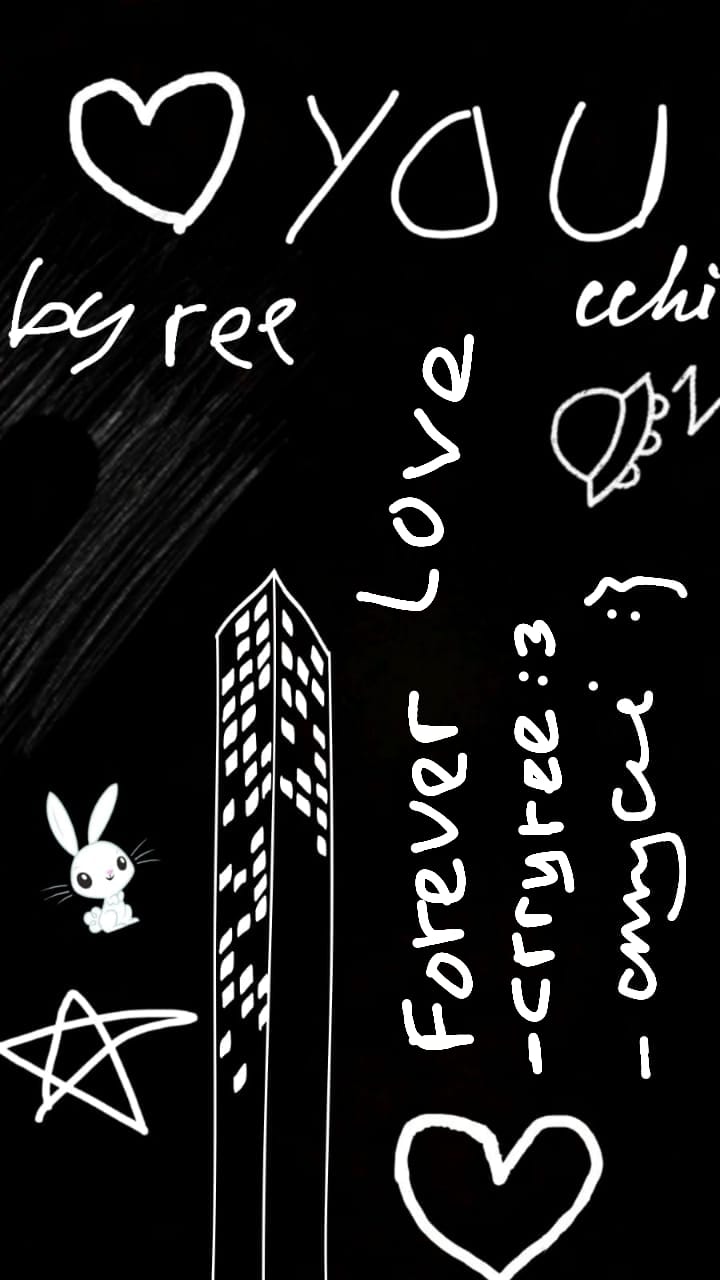 ♡ YOU
by ree
cchi
Forever Love
-crryree :3